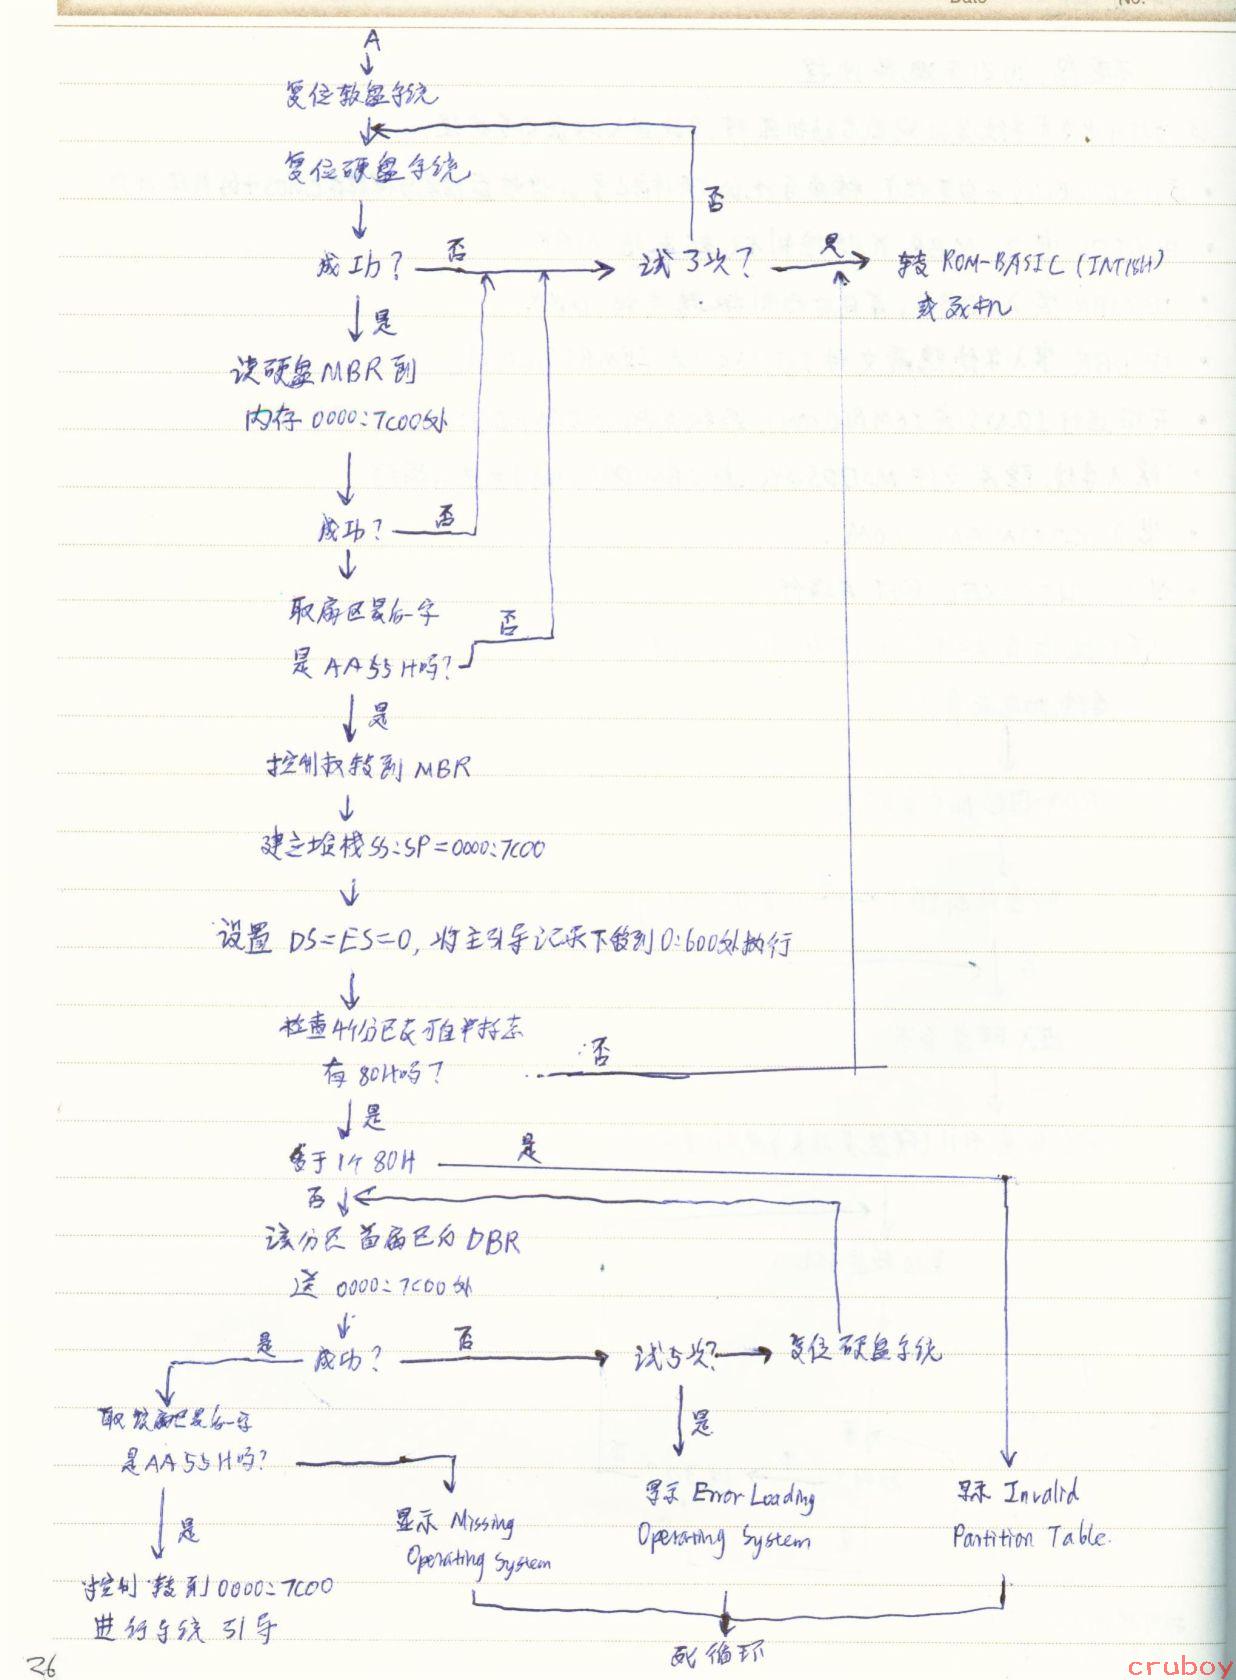 Date No.
A
复位软盘系统
复位硬盘系统
否
成功? 否 试3次? 是 转ROM-BASIC(INT18H)
或死机
是
读硬盘MBR到
内存0000:7C00处
成功? 否
取扇区最后一字
否
是AA55H吗?
是
控制权转到MBR
建立堆栈SS:SP=0000:7C00
设置 DS=ES=0, 将主引导记录下移到0:600处执行
检查4个分区表可自举标志
否
有80H吗?
是
多于1个80H 是
否
该分区首扇区的DBR
送 0000:7C00处
是 成功? 否 试5次? 复位硬盘系统
取该扇区最后一字
是
是AA55H吗?
显示 Error Loading
Operating System
显示 Invalid
Partition Table.
显示 Missing
Operating System
是
控制转到0000:7C00
进行系统引导
死循环
26
cruboy